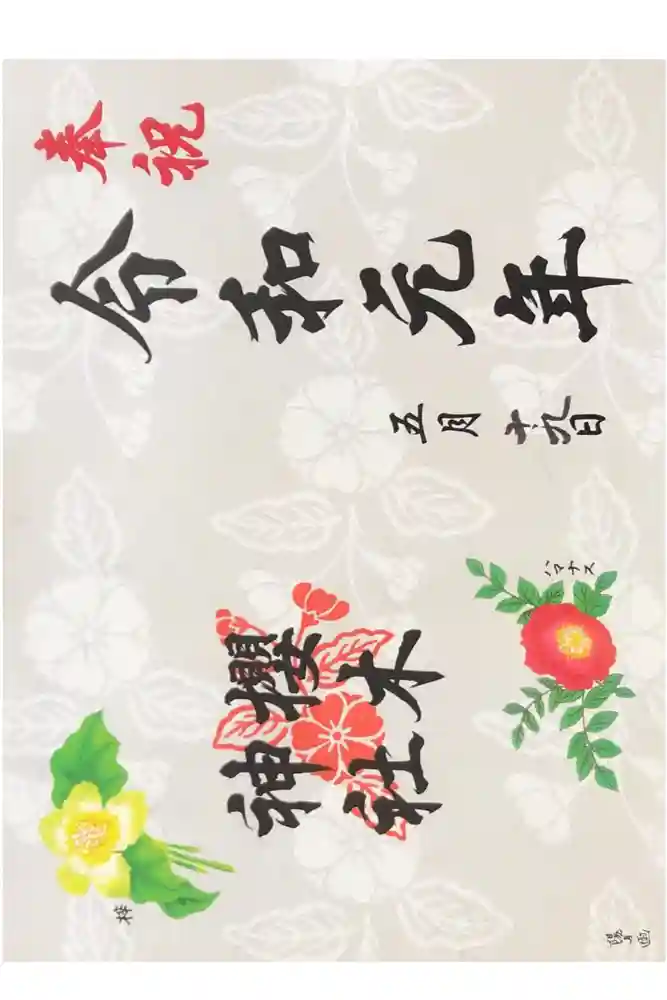 奉祝
令和元年
五月十九日
ハマナス
櫻木
神社
梓